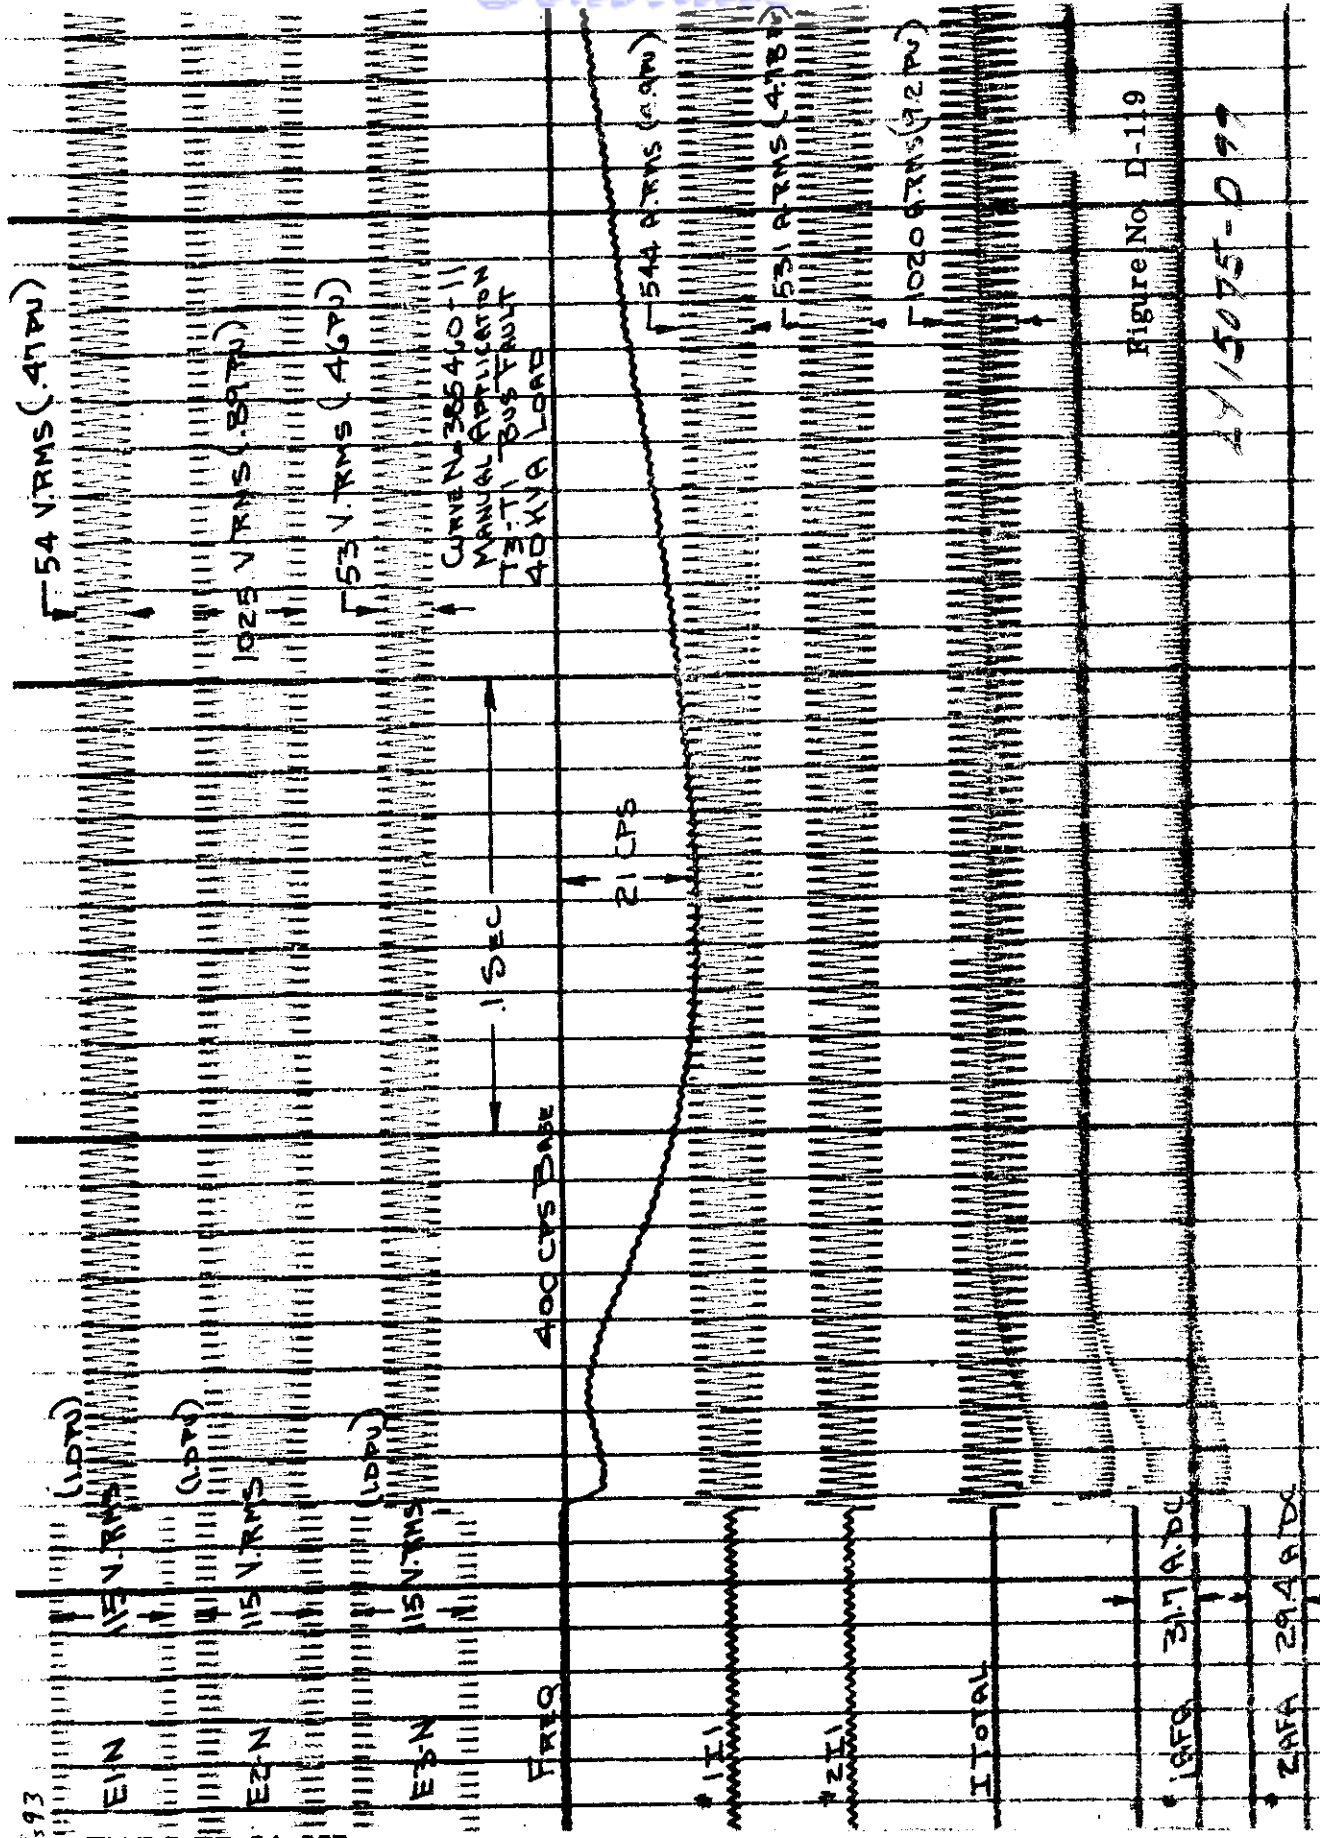 E1-N
115 V.RMS
(1.0 PU)
54 V.RMS (.47 PU)
E2-N
115 V.RMS
(1.0 PU)
1025 V RMS (.89 PU)
E3-N
115 V.RMS
(1.0 PU)
53 V. RMS (.46 PU)
CURVE No 386460-11
MANUAL APPLICATION
T3-T1 BUS FAULT
40 KVA LOAD
.1 SEC
FREQ
400 CPS BASE
21 CPS
#1 I1
544 A.RMS
#2 I1
531 A.RMS (4.78 PU)
I TOTAL
1020 A.RMS (9.2 PU)
31.7 A.DC
29.4 A.DC
Figure No. D-119
15075-D